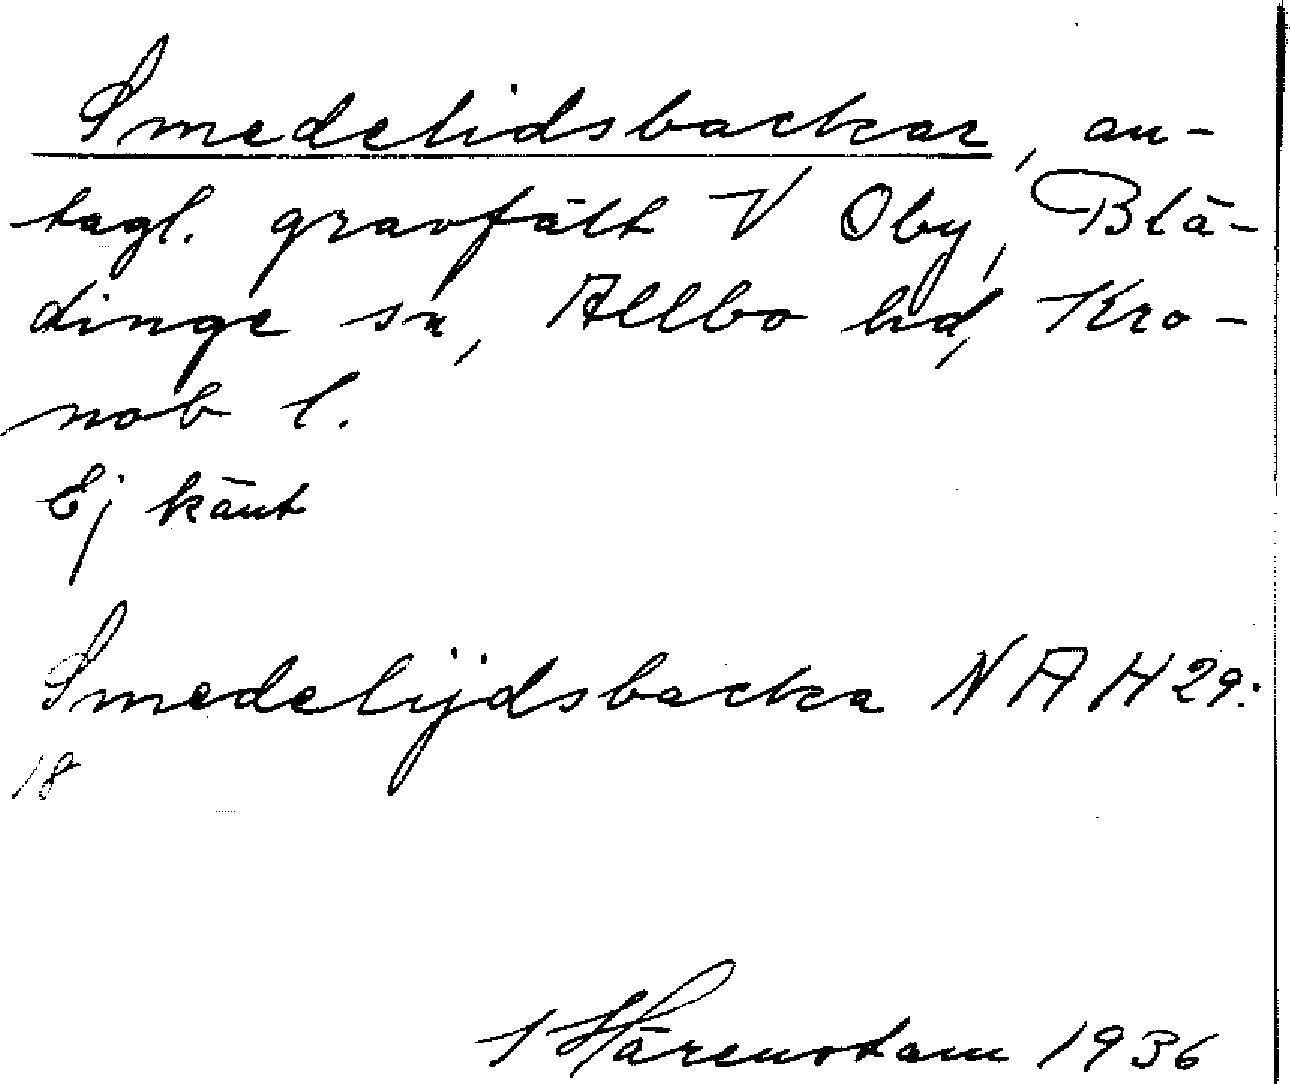 Smedelidsbackar, an-
tagl. gravfält V Oby, Blä-
dinge sn, Allbo hd, Kro-
nob l.
Ej känt
Smedelijdsbacka NAH29:
18
Härenstam 1936